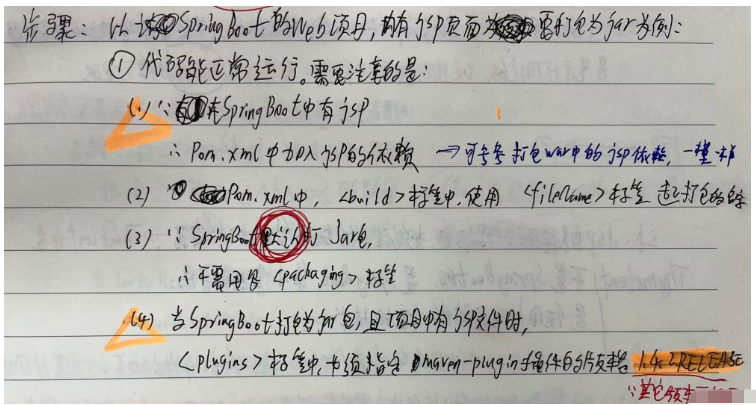 步骤: 以SpringBoot的Web项目,内有jsp页面需打包为jar为例:
① 代码能正常运行。需要注意的是:
(1) ∵在SpringBoot中有jsp
∴ Pom.xml中加入jsp的依赖 → 可参考打包war中的jsp依赖,一模一样
(2) Pom.xml中,<build>标签中,使用<fileName>标签 起打包的名字
(3) ∵SpringBoot默认打Jar包,
∴不需用写<packaging>标签
(4) 当SpringBoot打包为jar包,且项目中有jsp文件时,
<plugins>标签中,必须指定maven-plugin插件的版本号 1.4.2RELEASE
∵其它版本